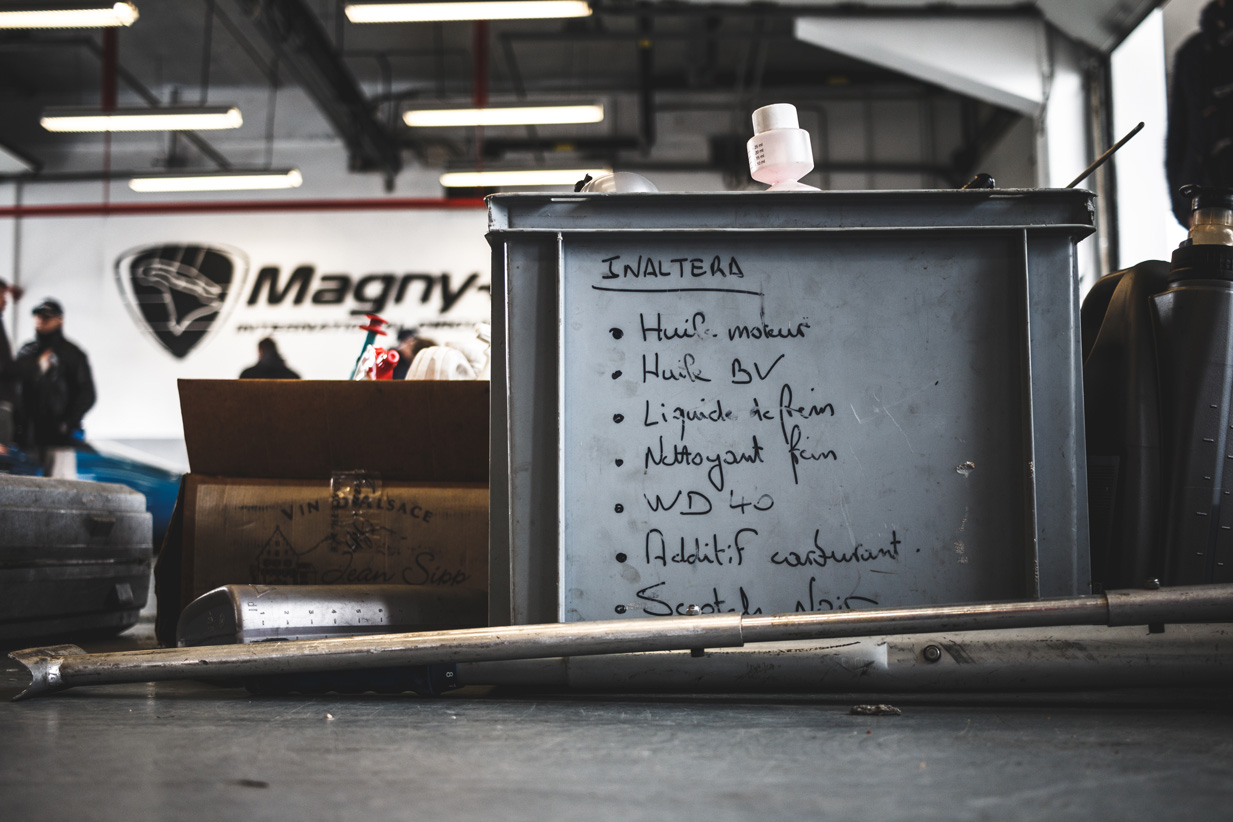 Magny-
INALTERA
• Huile moteur
• Huile BV
• Liquide de frein
• Nettoyant frein
• WD 40
• Additif carburant.
• Scotch Noir
VIN D'ALSACE
Jean Sipp